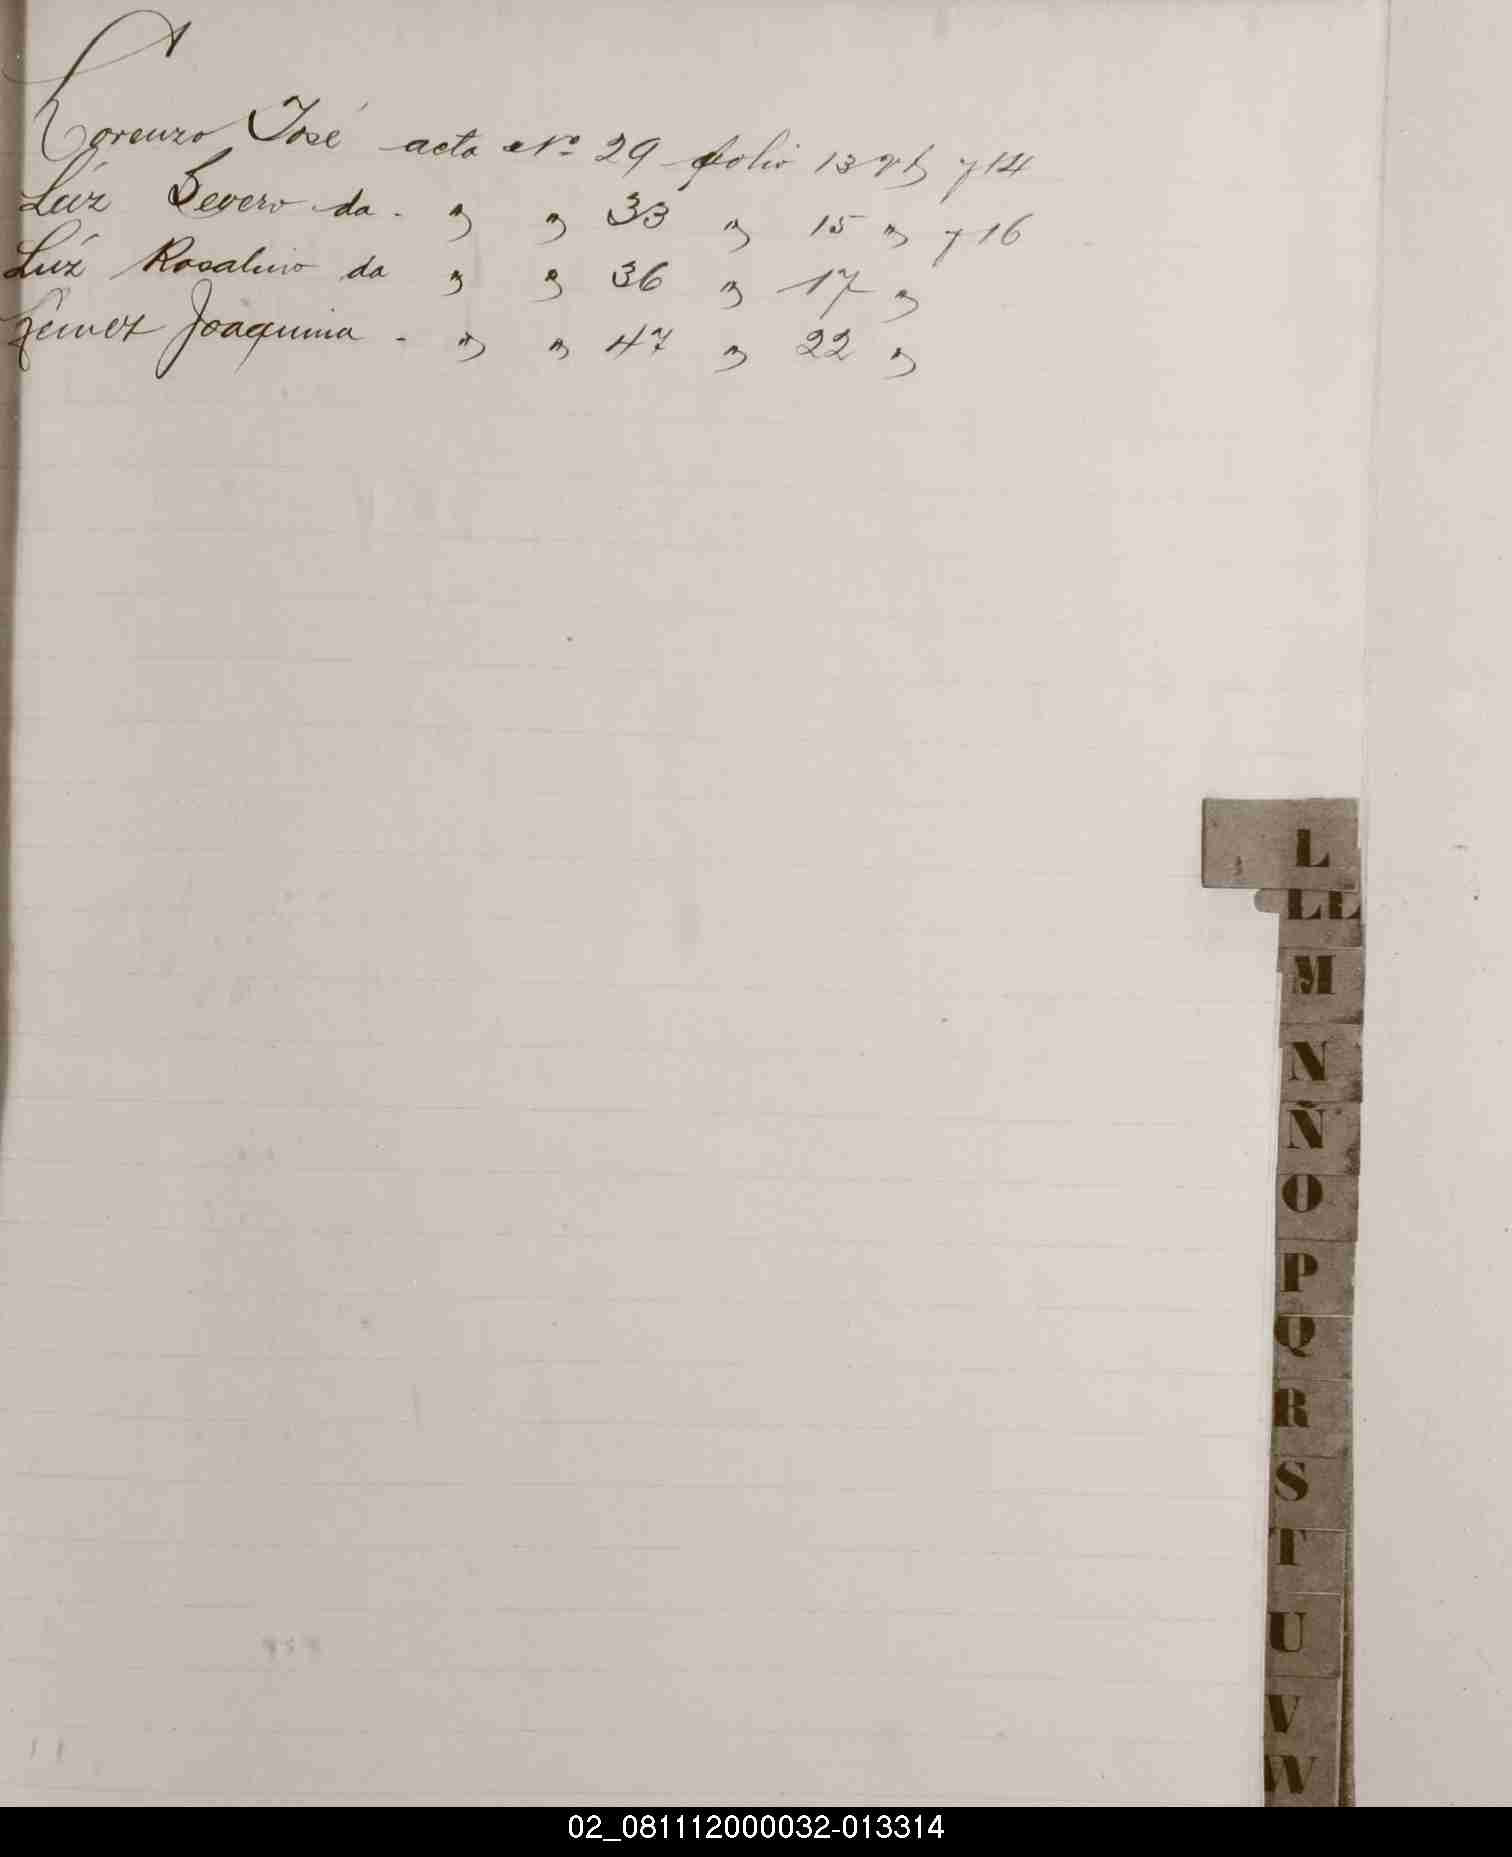 Lorenzo José acta Nº 29 folio 13 vta y 14
Lúz Severo da - " " 33 " 15 " y 16
Lúz Rosalino da " " 36 " 17 "
Joaquina - " " 47 " 22 "
L
LL
M
N
Ñ
O
P
Q
R
S
T
U
V
W
02_081112000032-013314